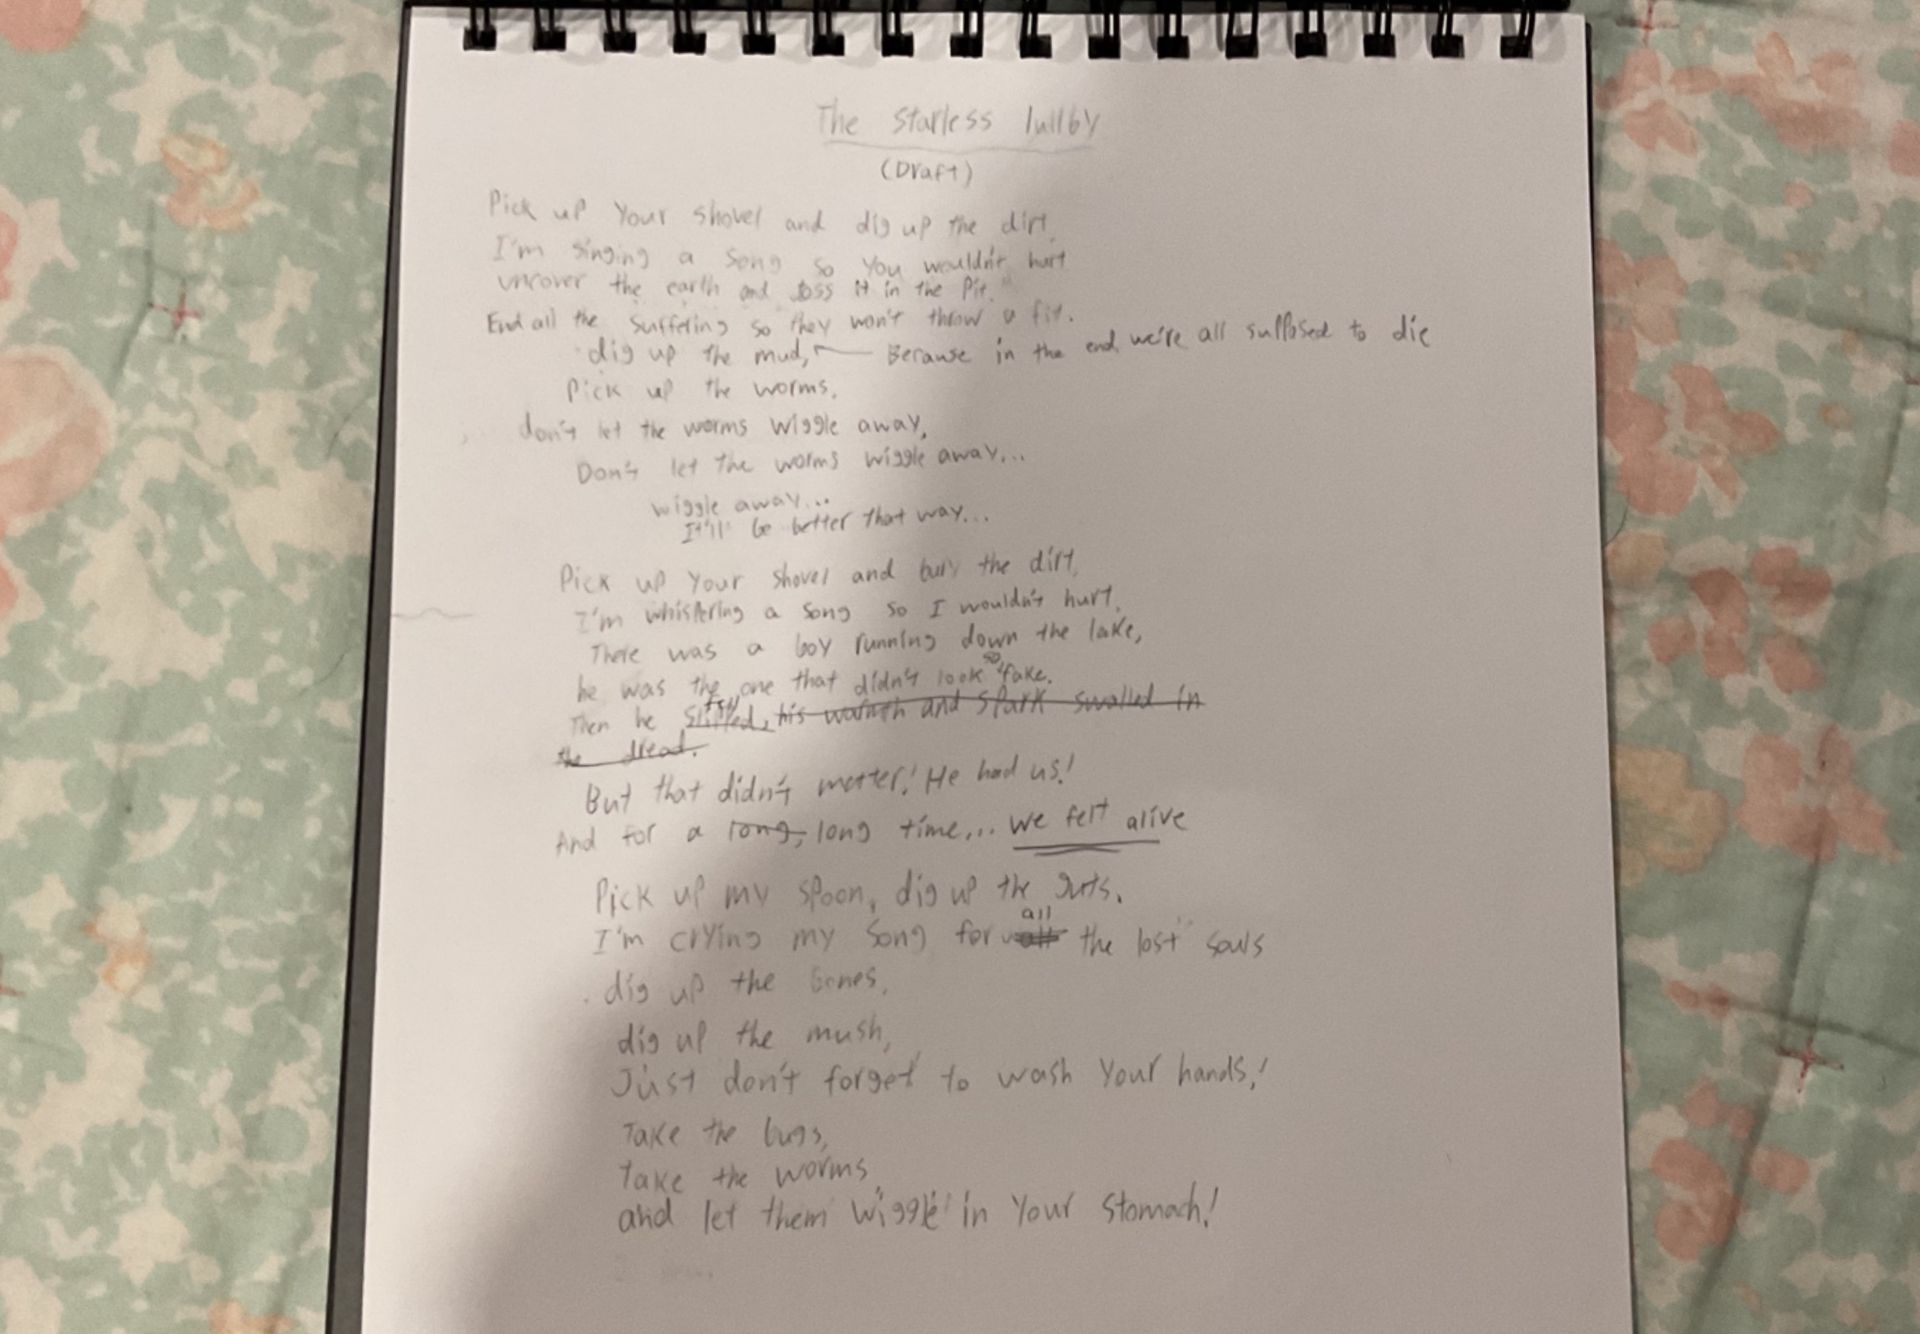 The starless lullby
(Draft)
Pick up your shovel and dig up the dirt,
I'm singing a song so you wouldn't hurt
uncover the earth and toss it in the pit.
End all the suffering so they won't throw a fit.
dig up the mud, Because in the end, we're all supposed to die
Pick up the worms,
don't let the worms wiggle away,
Don't let the worms wiggle away...
wiggle away...
It'll be better that way...
Pick up your shovel and bury the dirt,
I'm whispering a song so I wouldn't hurt,
There was a boy running down the lake,
he was the one that didn't look so fake.
Then he slipped, fell his warmth and spark swalled in
the dread.
But that didn't matter! He had us!
And for a long, long time... we felt alive
Pick up my spoon, dig up the guts.
I'm crying my song for all the lost souls
dig up the bones,
dig up the mush,
Just don't forget to wash your hands!
Take the bugs,
Take the worms,
and let them wiggle in your stomach!